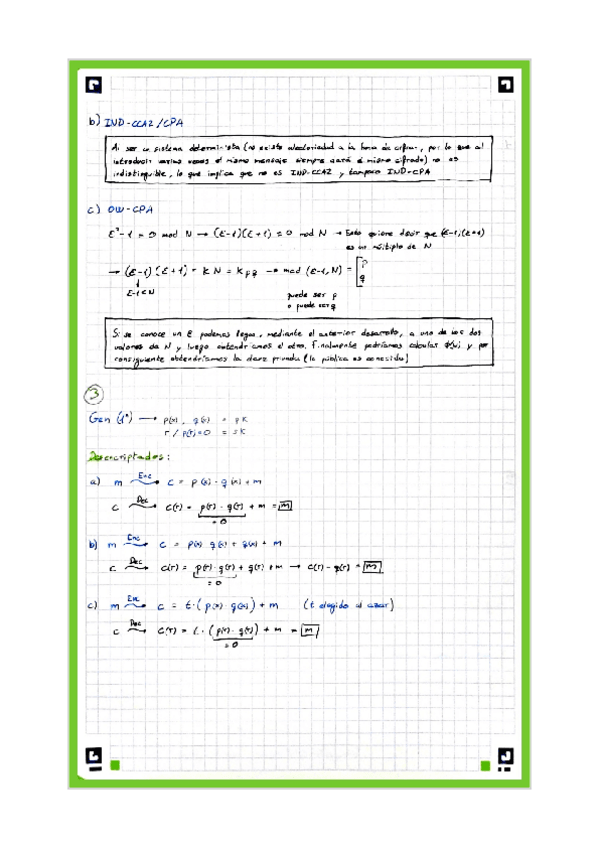 b) IND-CCA2/CPA
Al ser un sistema determinista (no existe aleatoriedad a la hora de cifrar, por lo que al
introducir varias veces el mismo mensaje siempre dará el mismo cifrado) no es
indistinguible, lo que implica que no es IND-CCA2 y tampoco IND-CPA
c) OW-CPA
ε² - 1 = 0 mod N → (ε-1)(ε+1) = 0 mod N → Esto quiere decir que (ε-1)(ε+1)
es un múltiplo de N
→ (ε-1)(ε+1) = KN = Kpq → mcd (ε-1, N) = [p
q
ε-1 < N
puede ser p
o puede ser q
Si se conoce un ε podemos llegar, mediante el anterior desarrollo, a uno de los dos
valores de N y luego obtendríamos el otro. Finalmente podríamos calcular y por
consiguiente obtendríamos la clave privada (la pública es conocida)
3
Gen (1ⁿ) → p(x), q(x) = pk
r / p(r)=0 = sk
Desencriptados:
a) m Enc c = p(x) · q(x) + m
c Dec c(r) = p(r) · q(r) + m = m
= 0
b) m Enc c = p(x) · q(x) + q(x) + m
c Dec c(r) = p(r) · q(r) + q(r) + m → c(r) - q(r) = m
= 0
c) m Enc c = t · (p(x) · q(x)) + m (t elegido al azar)
c Dec c(r) = t · (p(r) · q(r)) + m = m
= 0